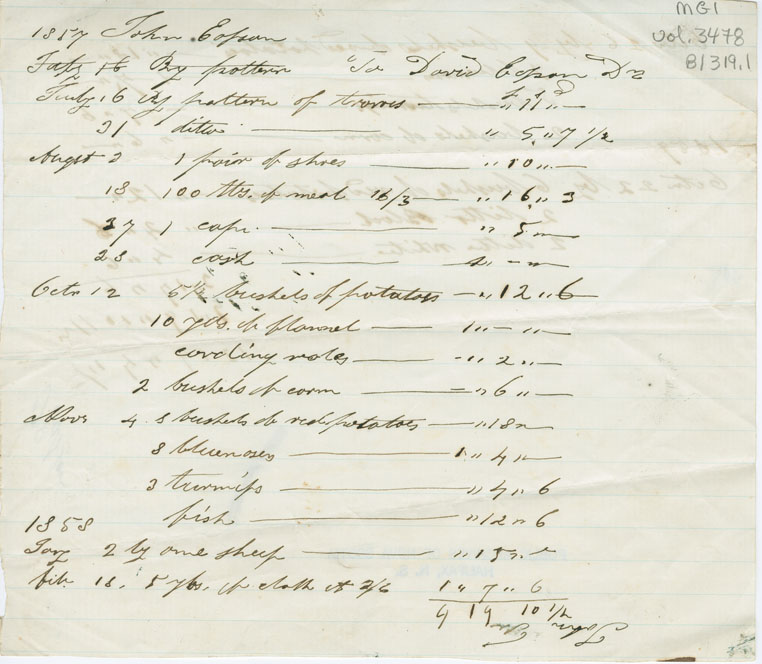 MG1
vol. 3478
B1319.1
1857 John Eopan
July 16 By pattern To David Eopan Dr
July 16 By pattern of trowes — " 11 " —
31 ditto — " 5 " 7 1/2
Augst 2 1 pair of shoes — " 10 " —
18 100 lbs. of meal 16/3 — " 16 " 3
27 1 cape — " 5 " —
28 cash —
Octr 12 6 1/2 bushels of potatoes — " 12 " 6
10 yds. of flannel — 1 " — " —
carding roles — " 2 " —
2 bushels of corn — " 6 " —
Novr 4 8 bushels of red potatoes — " 18 "
8 bluenoses — 1 " 4 " —
3 turnips — " 4 " 6
fish — " 12 " 6
1858
Jany 2 by one sheep — " 15 " —
feb. 18. 5 yds. of cloth at 5/6 1 " 7 " 6
9 19 10 1/2